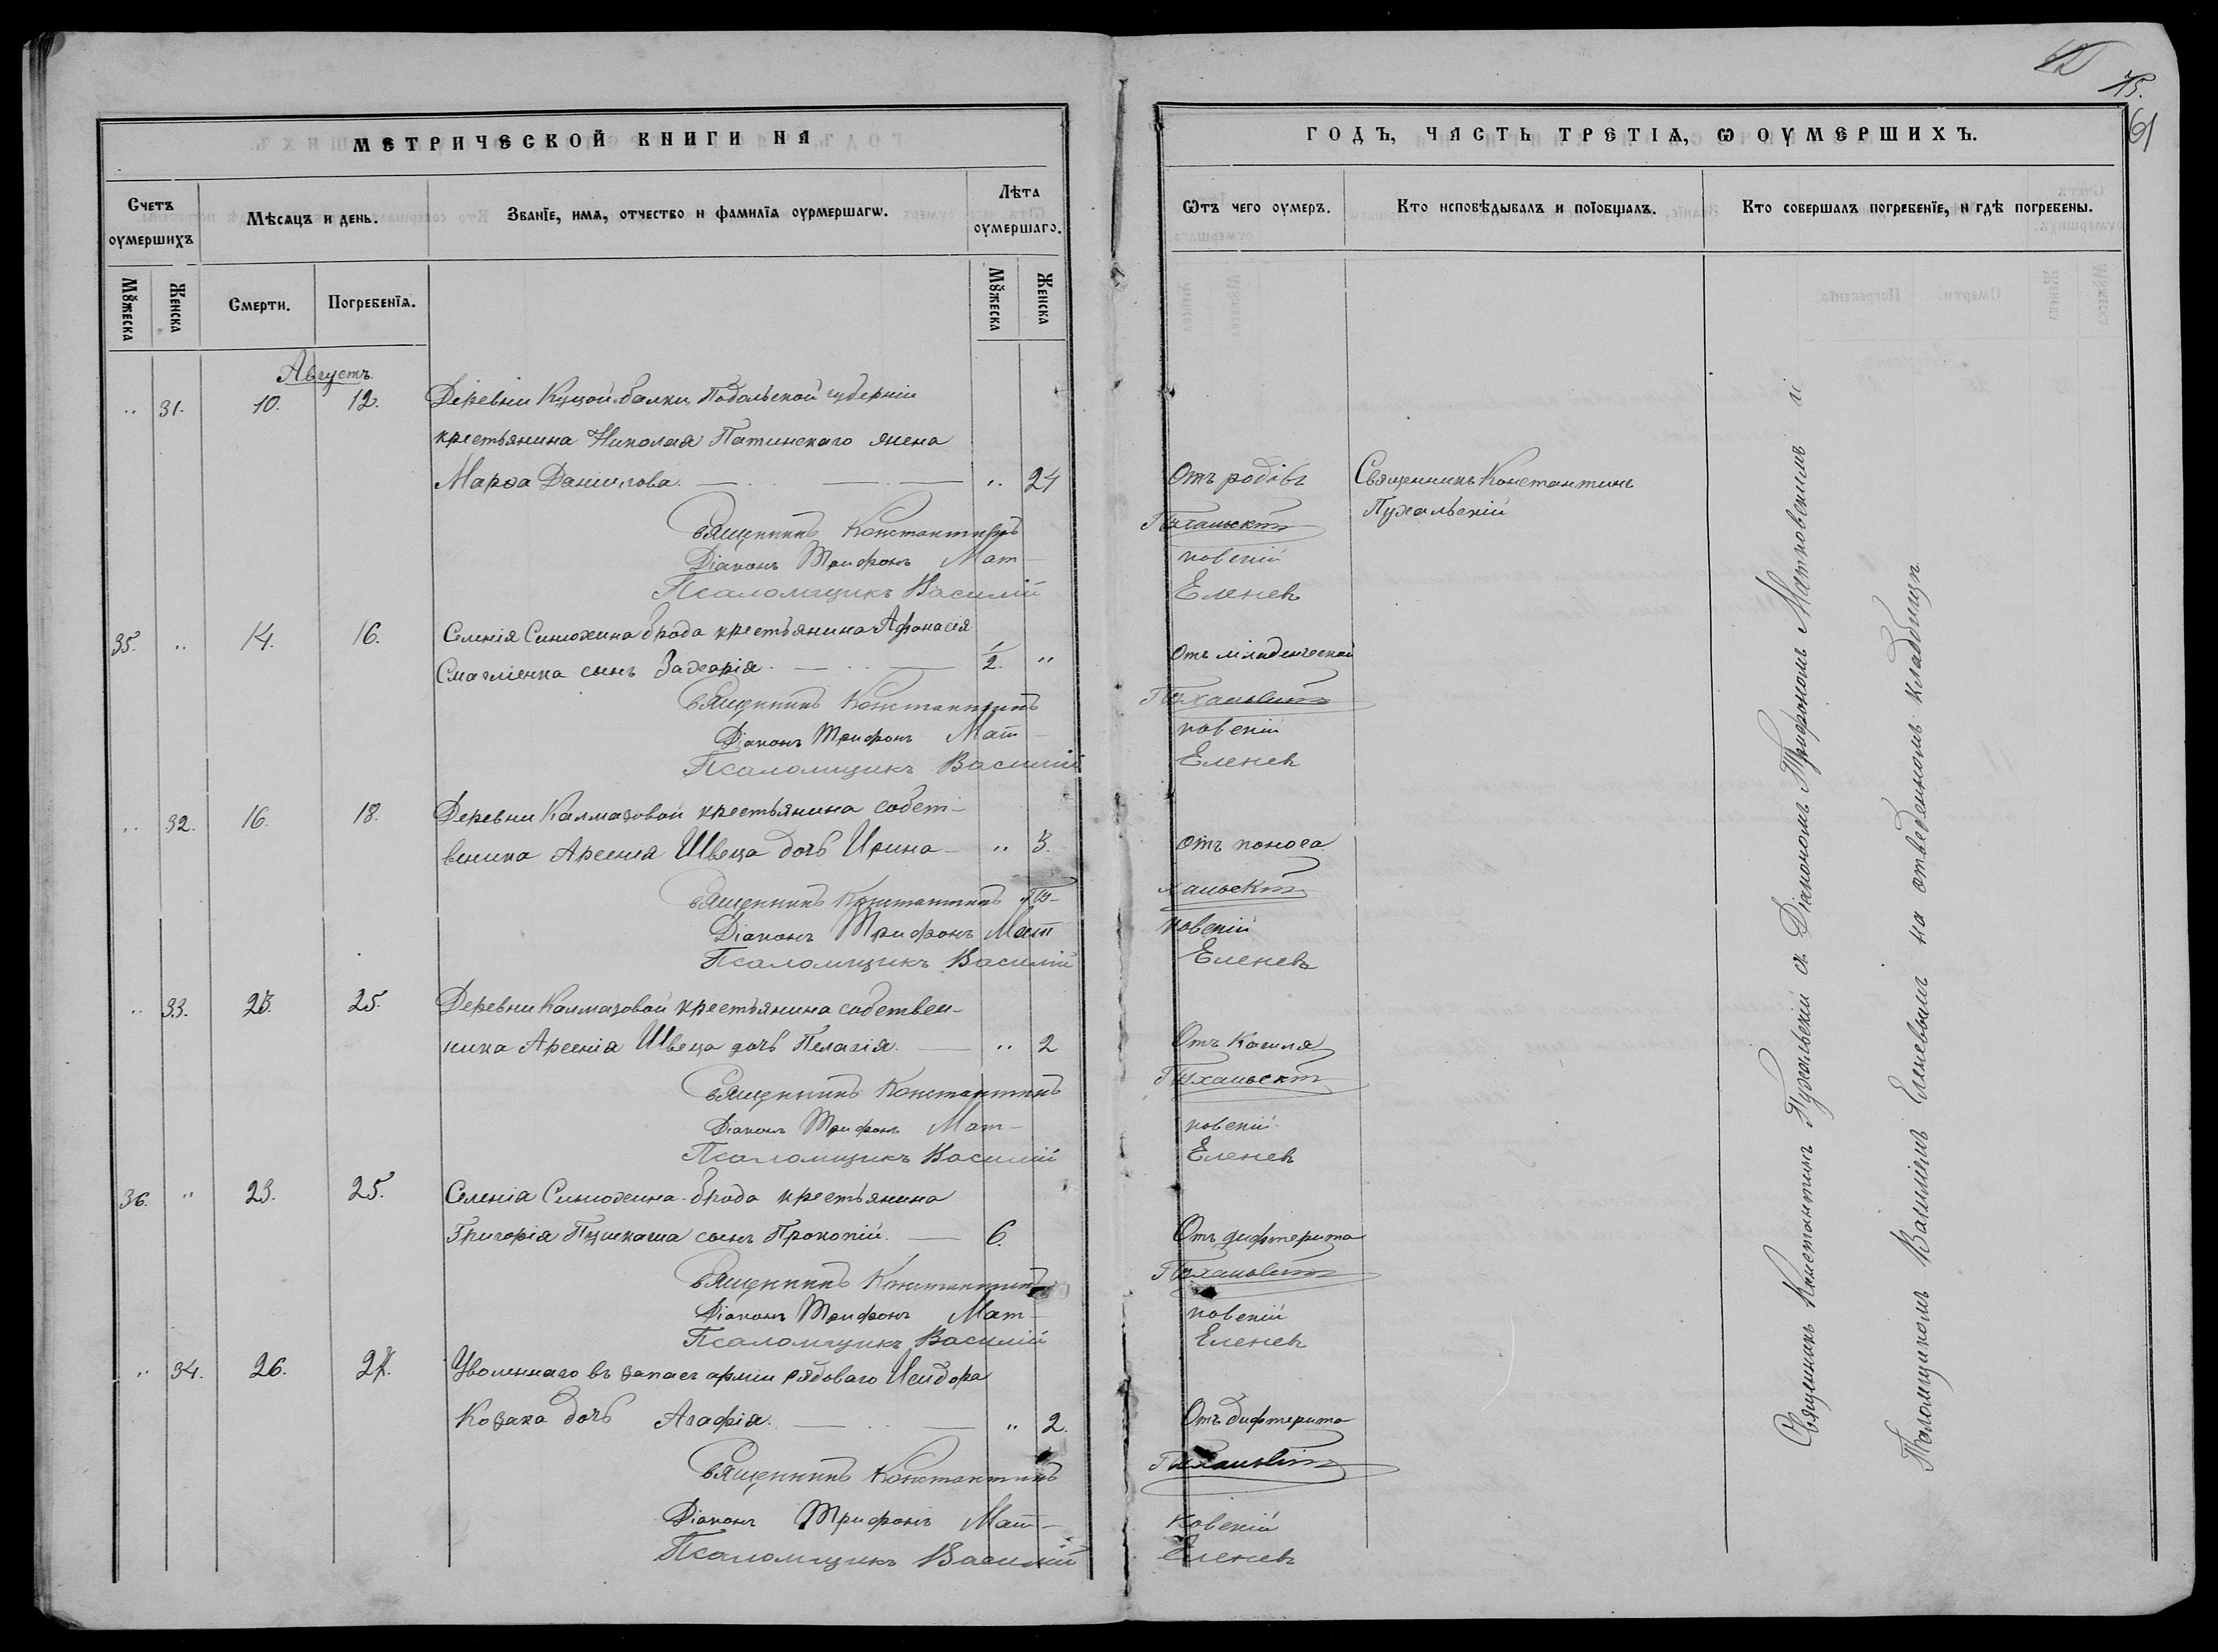 МЕТРИЧЕСКОЙ КНИГИ НА
Счетъ оумершихъ
Мѣсяцъ и день.
Званїе, имѧ, отчество и фамилїѧ оурмершагѡ.
Лѣта оумершаго.
Мꙋжеска
Женска
Смерти.
Погребенїѧ.
Мꙋжеска
Женска
Августъ
" 31. 10. 12. Деревни Куцой-балки Подольской губерніи
крестьянина Николая Патинскаго жена
Марѳа Данилова. " 24
Священникъ Константинъ
Діаконъ Трифонъ Мат-
Псаломщикъ Василій
35. " 14. 16. Селенія Синюхина брода крестьянина Афанасія
Смагліенка сынъ Захарія. 1/2. "
Священникъ Константинъ
Діаконъ Трифонъ Мат-
Псаломщикъ Василій
" 32. 16. 18. Деревни Калмазовой крестьянина собст-
венника Арсенія Швеца дочь Ирина " 3.
Священникъ Константинъ Пу-
Діаконъ Трифонъ Мат
Псаломщикъ Василій
" 33. 23. 25. Деревни Калмазовой крестьянина собствен-
ника Арсенія Швеца дочь Пелагія. " 2
Священникъ Константинъ
Діаконъ Трифонъ Мат-
Псаломщикъ Василій
36. " 23. 25. Селенія Синюхина-брода крестьянина
Григорія Пушкаша сынъ Прокопій. 6.
Священникъ Константинъ
Діаконъ Трифонъ Мат-
Псаломщикъ Василій
" 34. 26. Уволеннаго въ запасъ арміи рядоваго Исидора
Козака дочь Агафія. " 2.
Священникъ Константинъ
Діаконъ Трифонъ Мат-
Псаломщикъ Василій
75.
61
ГОДЪ, ЧАСТЬ ТРЕТІѦ, Ѡ ОУМЕРШИХЪ.
Ѿтъ чего оумеръ.
Кто исповѣдывалъ и поїобщалъ.
Кто совершалъ погребенїе, и гдѣ погребены.
Отъ родовъ Священникъ Константинъ
Пухальскій
Пухальскій
ковскій
Еленевъ
Отъ младенческой
Пухальскій
ковскій
Еленевъ
Отъ поноса
хальскій
ковскій
Еленевъ
Отъ Кашля
Пухальскій
ковскій
Еленевъ
Отъ дифтерита
Пухальскій
ковскій
Еленевъ
Отъ дифтерита
Пухальскій
ковскій
Еленевъ
Священникъ Константинъ Пухальскій съ Діакономъ Трифономъ Матковскимъ и
Псаломщикомъ Василіемъ Еленевымъ на отведенномъ кладбищѣ